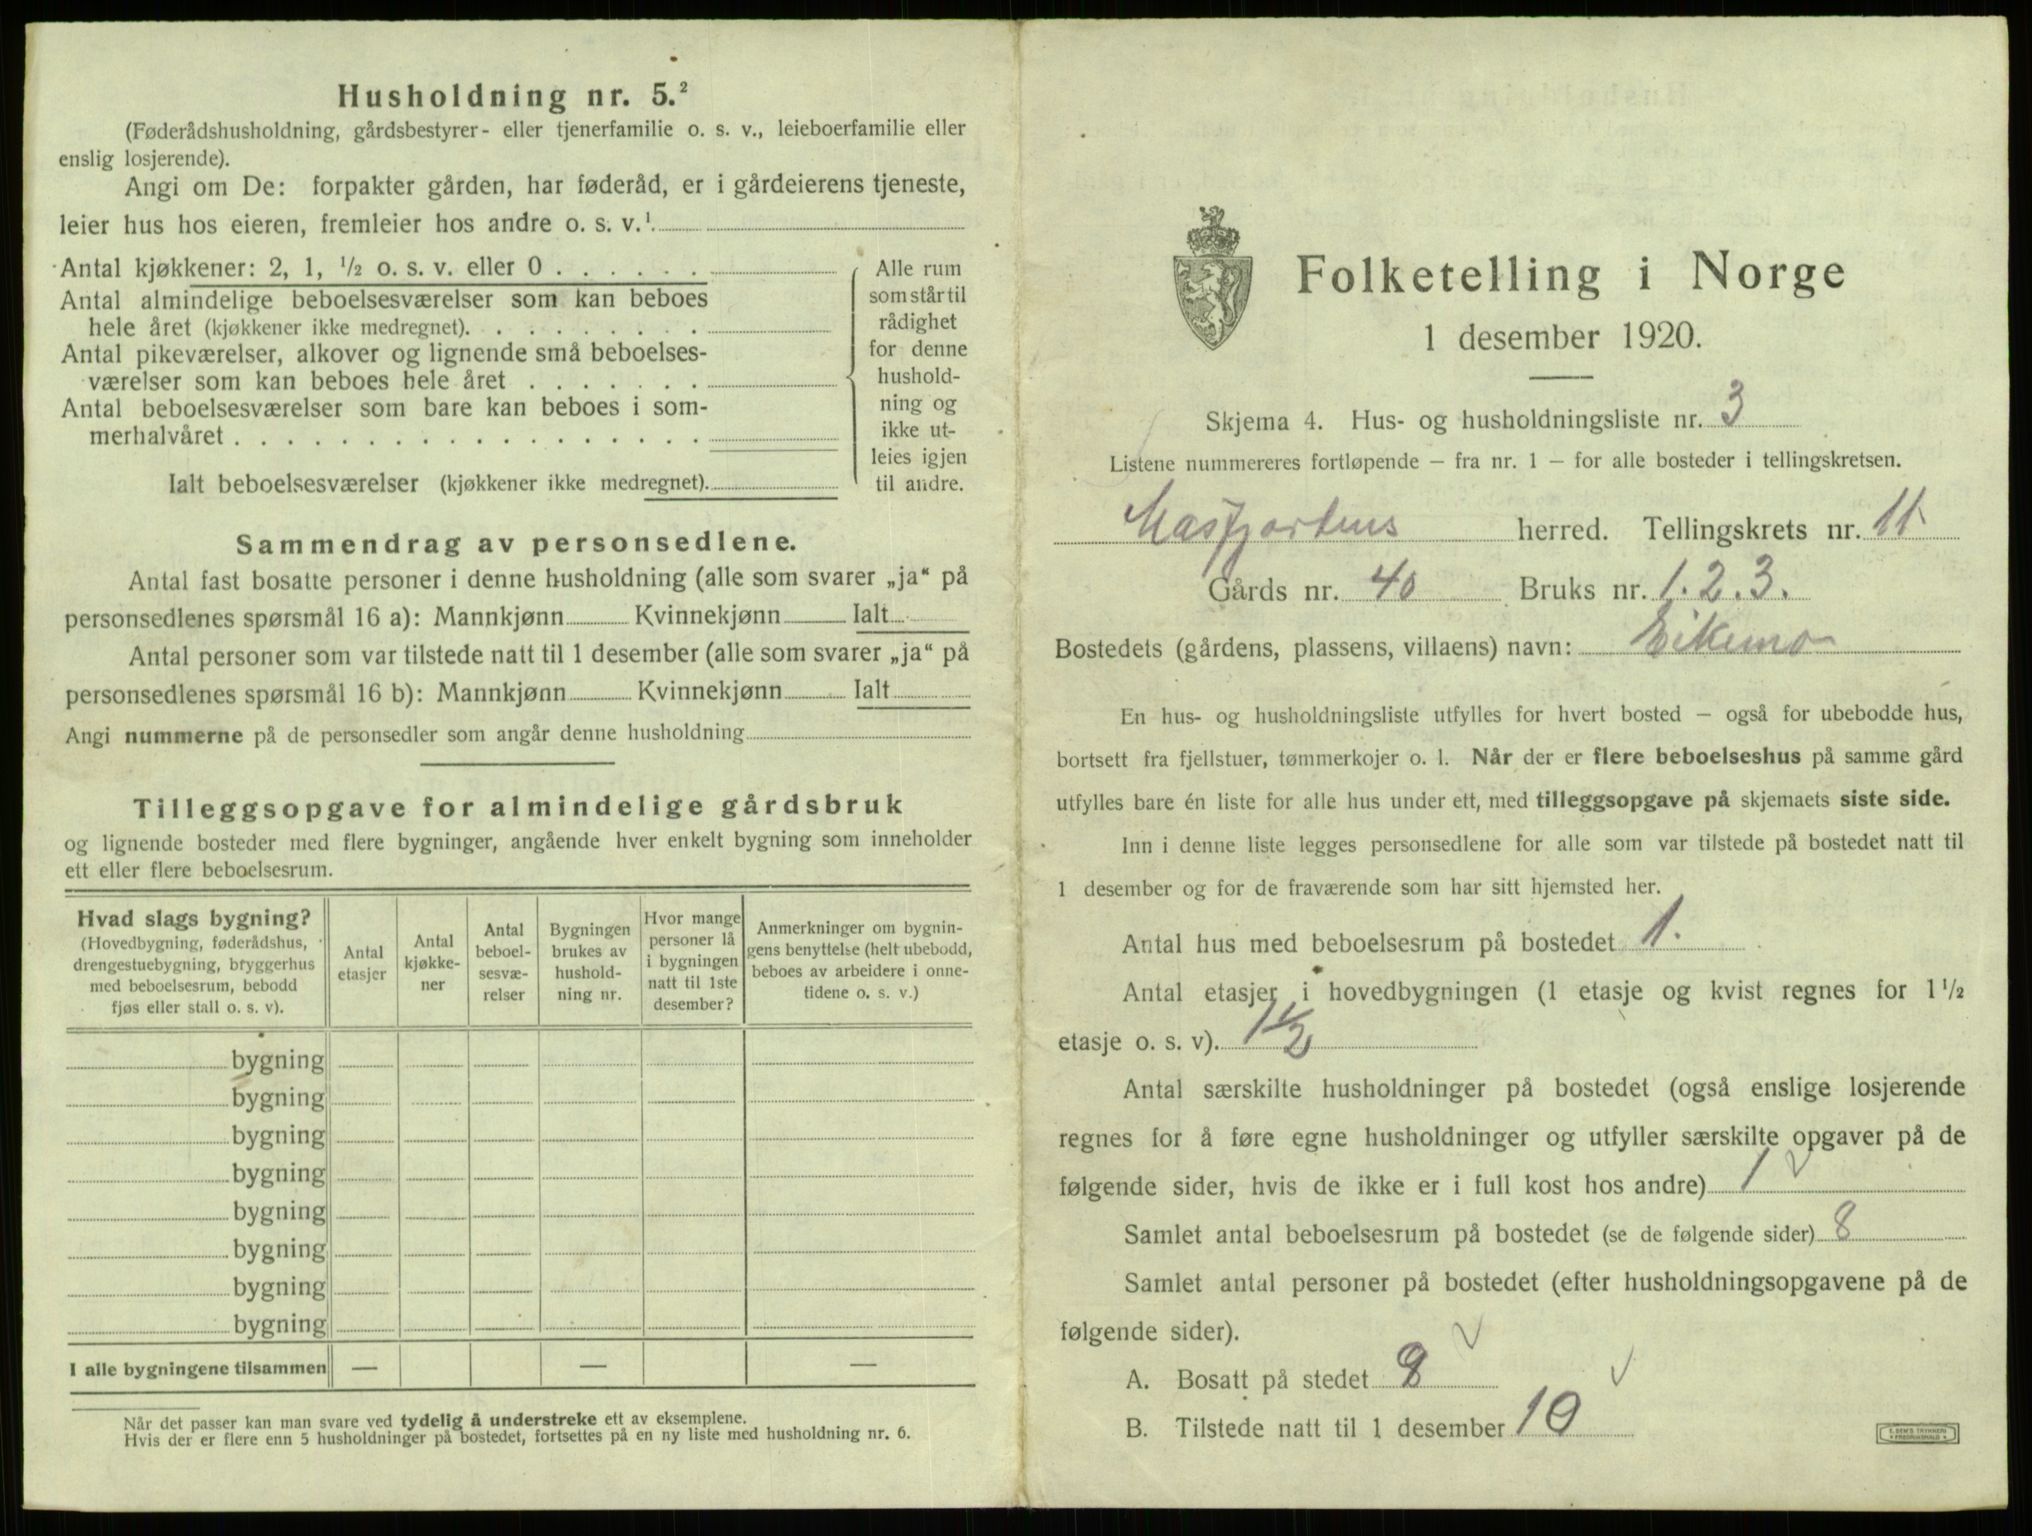 Husholdning nr. 5.²
(Føderådshusholdning, gårdsbestyrer- eller tjenerfamilie o. s. v., leieboerfamilie eller
enslig losjerende).
Angi om De: forpakter gården, har føderåd, er i gårdeierens tjeneste,
leier hus hos eieren, fremleier hos andre o. s. v.¹
Antal kjøkkener: 2, 1, ½ o. s. v. eller 0 . . . . . .
Antal almindelige beboelsesværelser som kan beboes
hele året (kjøkkener ikke medregnet). . . . . . . . .
Antal pikeværelser, alkover og lignende små beboelses-
værelser som kan beboes hele året . . . . . . .
Antal beboelsesværelser som bare kan beboes i som-
merhalvåret . . . . . . . . . . . . . . . . . .
Ialt beboelsesværelser (kjøkkener ikke medregnet).
Alle rum
som står til
rådighet
for denne
hushold-
ning og
ikke ut-
leies igjen
til andre.
Sammendrag av personsedlene.
Antal fast bosatte personer i denne husholdning (alle som svarer „ja“ på
personsedlenes spørsmål 16 a): Mannkjønn Kvinnekjønn Ialt
Antal personer som var tilstede natt til 1 desember (alle som svarer „ja“ på
personsedlenes spørsmål 16 b): Mannkjønn Kvinnekjønn Ialt
Angi nummerne på de personsedler som angår denne husholdning
Tilleggsopgave for almindelige gårdsbruk
og lignende bosteder med flere bygninger, angående hver enkelt bygning som inneholder
ett eller flere beboelsesrum.
Hvad slags bygning?
(Hovedbygning, føderådshus,
drengestuebygning, bryggerhus
med beboelsesrum, bebodd
fjøs eller stall o. s. v).
Antal
etasjer
Antal
kjøkke-
ner
Antal
beboel-
sesvæ-
relser
Bygningen
brukes av
hushold-
ning nr.
Hvor mange
personer lå
i bygningen
natt til 1ste
desember?
Anmerkninger om bygnin-
gens benyttelse (helt ubebodd,
beboes av arbeidere i onne-
tidene o. s. v.)
bygning
bygning
bygning
bygning
bygning
bygning
bygning
bygning
I alle bygningene tilsammen — — —
Når det passer kan man svare ved tydelig å understreke ett av eksemplene.
Hvis der er flere enn 5 husholdninger på bostedet, fortsettes på en ny liste med husholdning nr. 6.
Folketelling i Norge
1 desember 1920.
Skjema 4. Hus- og husholdningsliste nr. 3
Listene nummereres fortløpende – fra nr. 1 – for alle bosteder i tellingskretsen.
Masfjorden herred. Tellingskrets nr. 11
Gårds nr. 40 Bruks nr. 1. 2. 3.
Bostedets (gårdens, plassens, villaens) navn: Eikemo
En hus- og husholdningsliste utfylles for hvert bosted – også for ubebodde hus,
bortsett fra fjellstuer, tømmerkojer o. l. Når der er flere beboelseshus på samme gård
utfylles bare én liste for alle hus under ett, med tilleggsopgave på skjemaets siste side.
Inn i denne liste legges personsedlene for alle som var tilstede på bostedet natt til
1 desember og for de fraværende som har sitt hjemsted her.
Antal hus med beboelsesrum på bostedet 1.
Antal etasjer i hovedbygningen (1 etasje og kvist regnes for 1½
etasje o. s. v). 1½
Antal særskilte husholdninger på bostedet (også enslige losjerende
regnes for å føre egne husholdninger og utfyller særskilte opgaver på de
følgende sider, hvis de ikke er i full kost hos andre) 1 √
Samlet antal beboelsesrum på bostedet (se de følgende sider) 8
Samlet antal personer på bostedet (efter husholdningsopgavene på de
følgende sider).
A. Bosatt på stedet 8 √
B. Tilstede natt til 1 desember 10 √
E. SEM'S TRYKKERI
• FREDRIKSHALD •